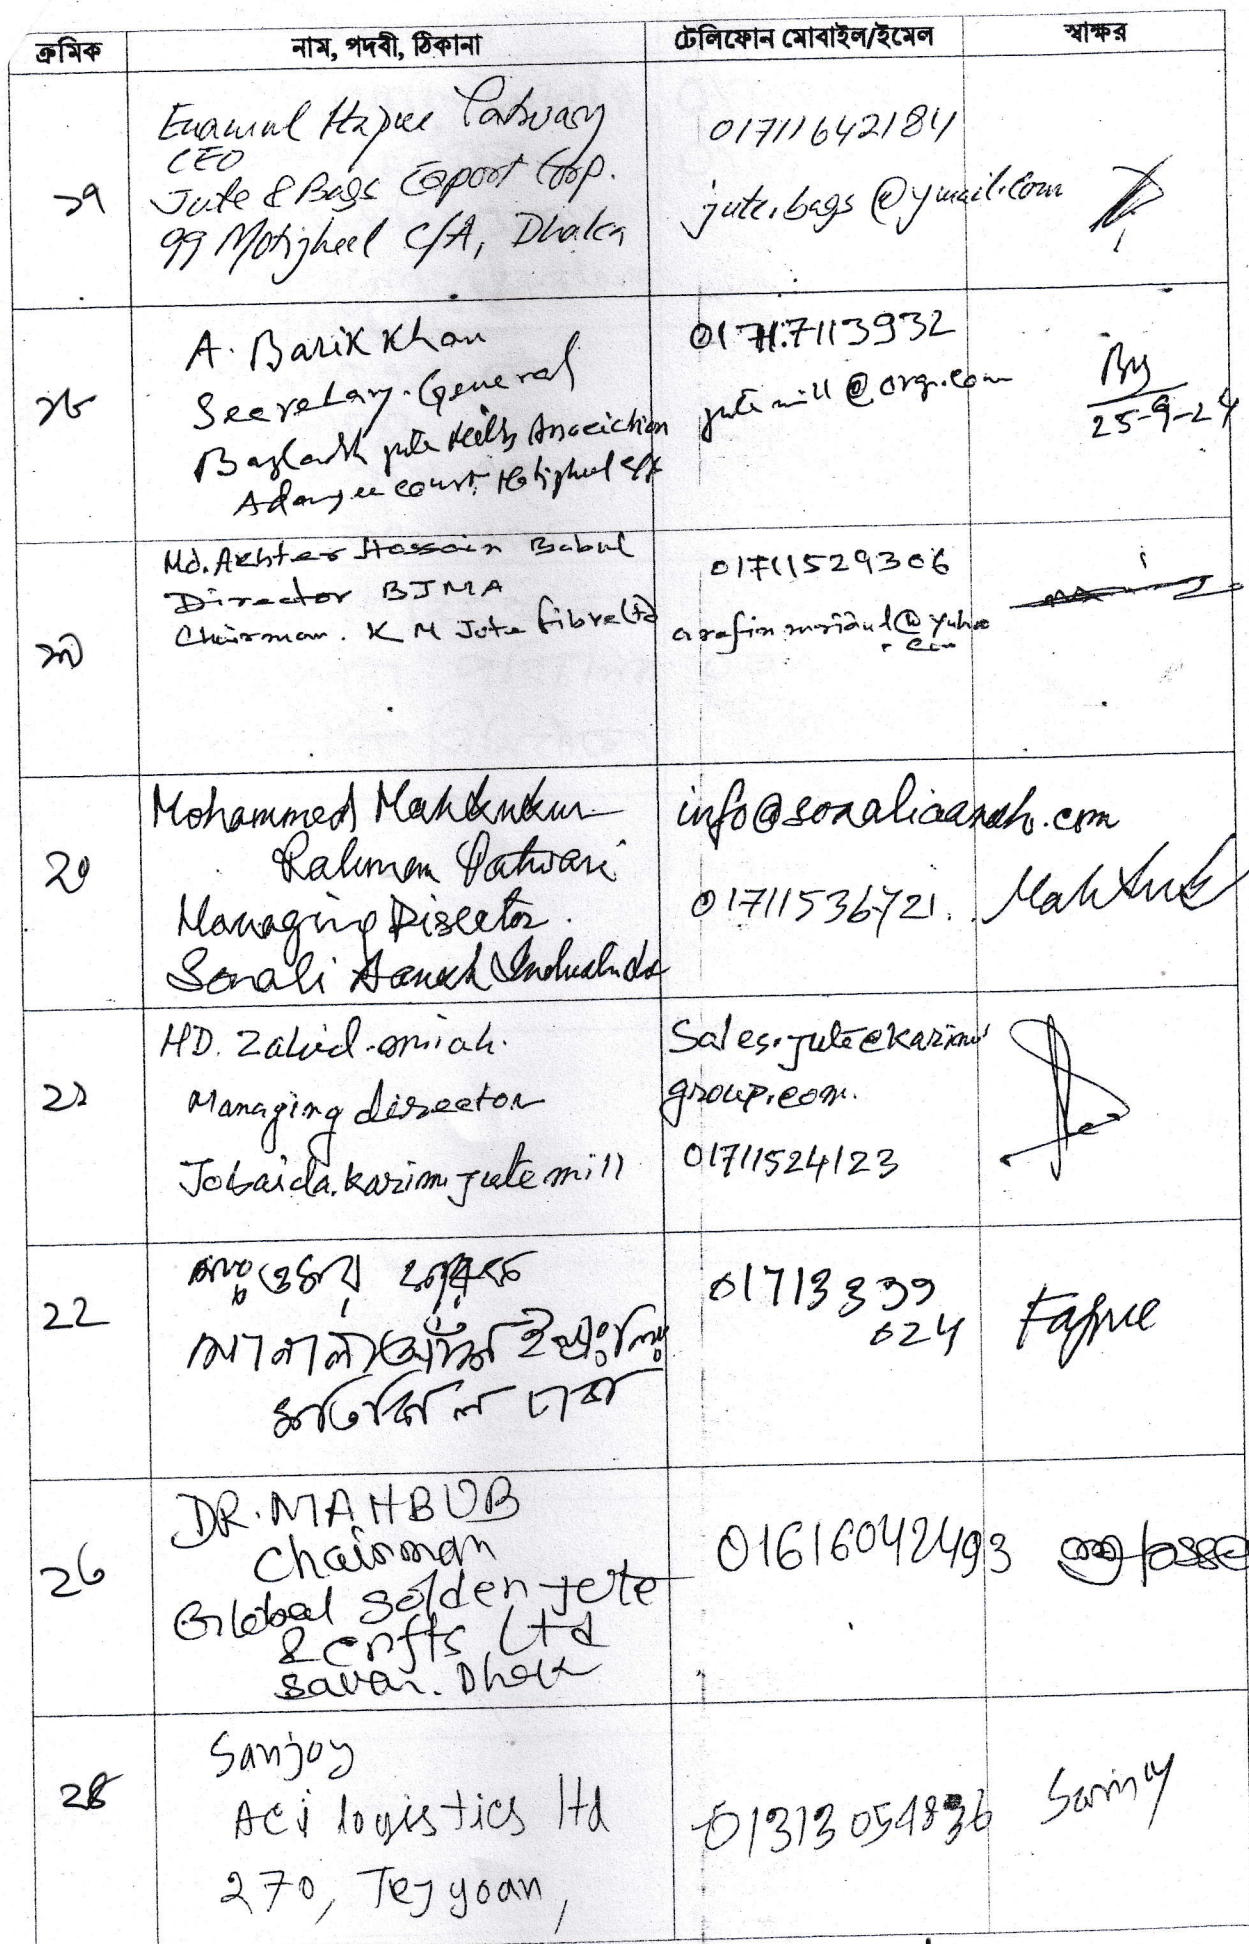 ক্রমিক নাম, পদবী, ঠিকানা টেলিফোন মোবাইল/ইমেল স্বাক্ষর
Enamul Haque Patwary
CEO
Jute & Bags Export Corp.
99 Motijheel C/A, Dhaka
01711642184
jute.bags@ymail.com
১৭
A. Barik Khan
Secretary General
jute Mills
Adamjee court, Motijheel C/A
7113932
jute mill@org.com
25-9-24
১৮
Md. Akhter Hossain Babul
Director BJMA
Chairman. K M Jute fibre Ltd
01711529306
১৯
Mohammed Mahbubur
Rahman Patwari
Managing Director.
Sonali Aansh
info@sonaliaansh.com
01711536721.
২০
MD. Zahid miah.
Managing director
Jobaida karim jute mill
Sales.jute@karim
group.com.
01711524123
২১
মতিঝিল ঢাকা
01713 339
024
২২
DR. MAHBUB
Chairman
Global Golden jute
& crfts Ltd
Savar. Dhaka
01616042493
২৩
Sanjoy
ACI logistics ltd
270, Tejgoan,
01313054836
Sanjoy
২৪